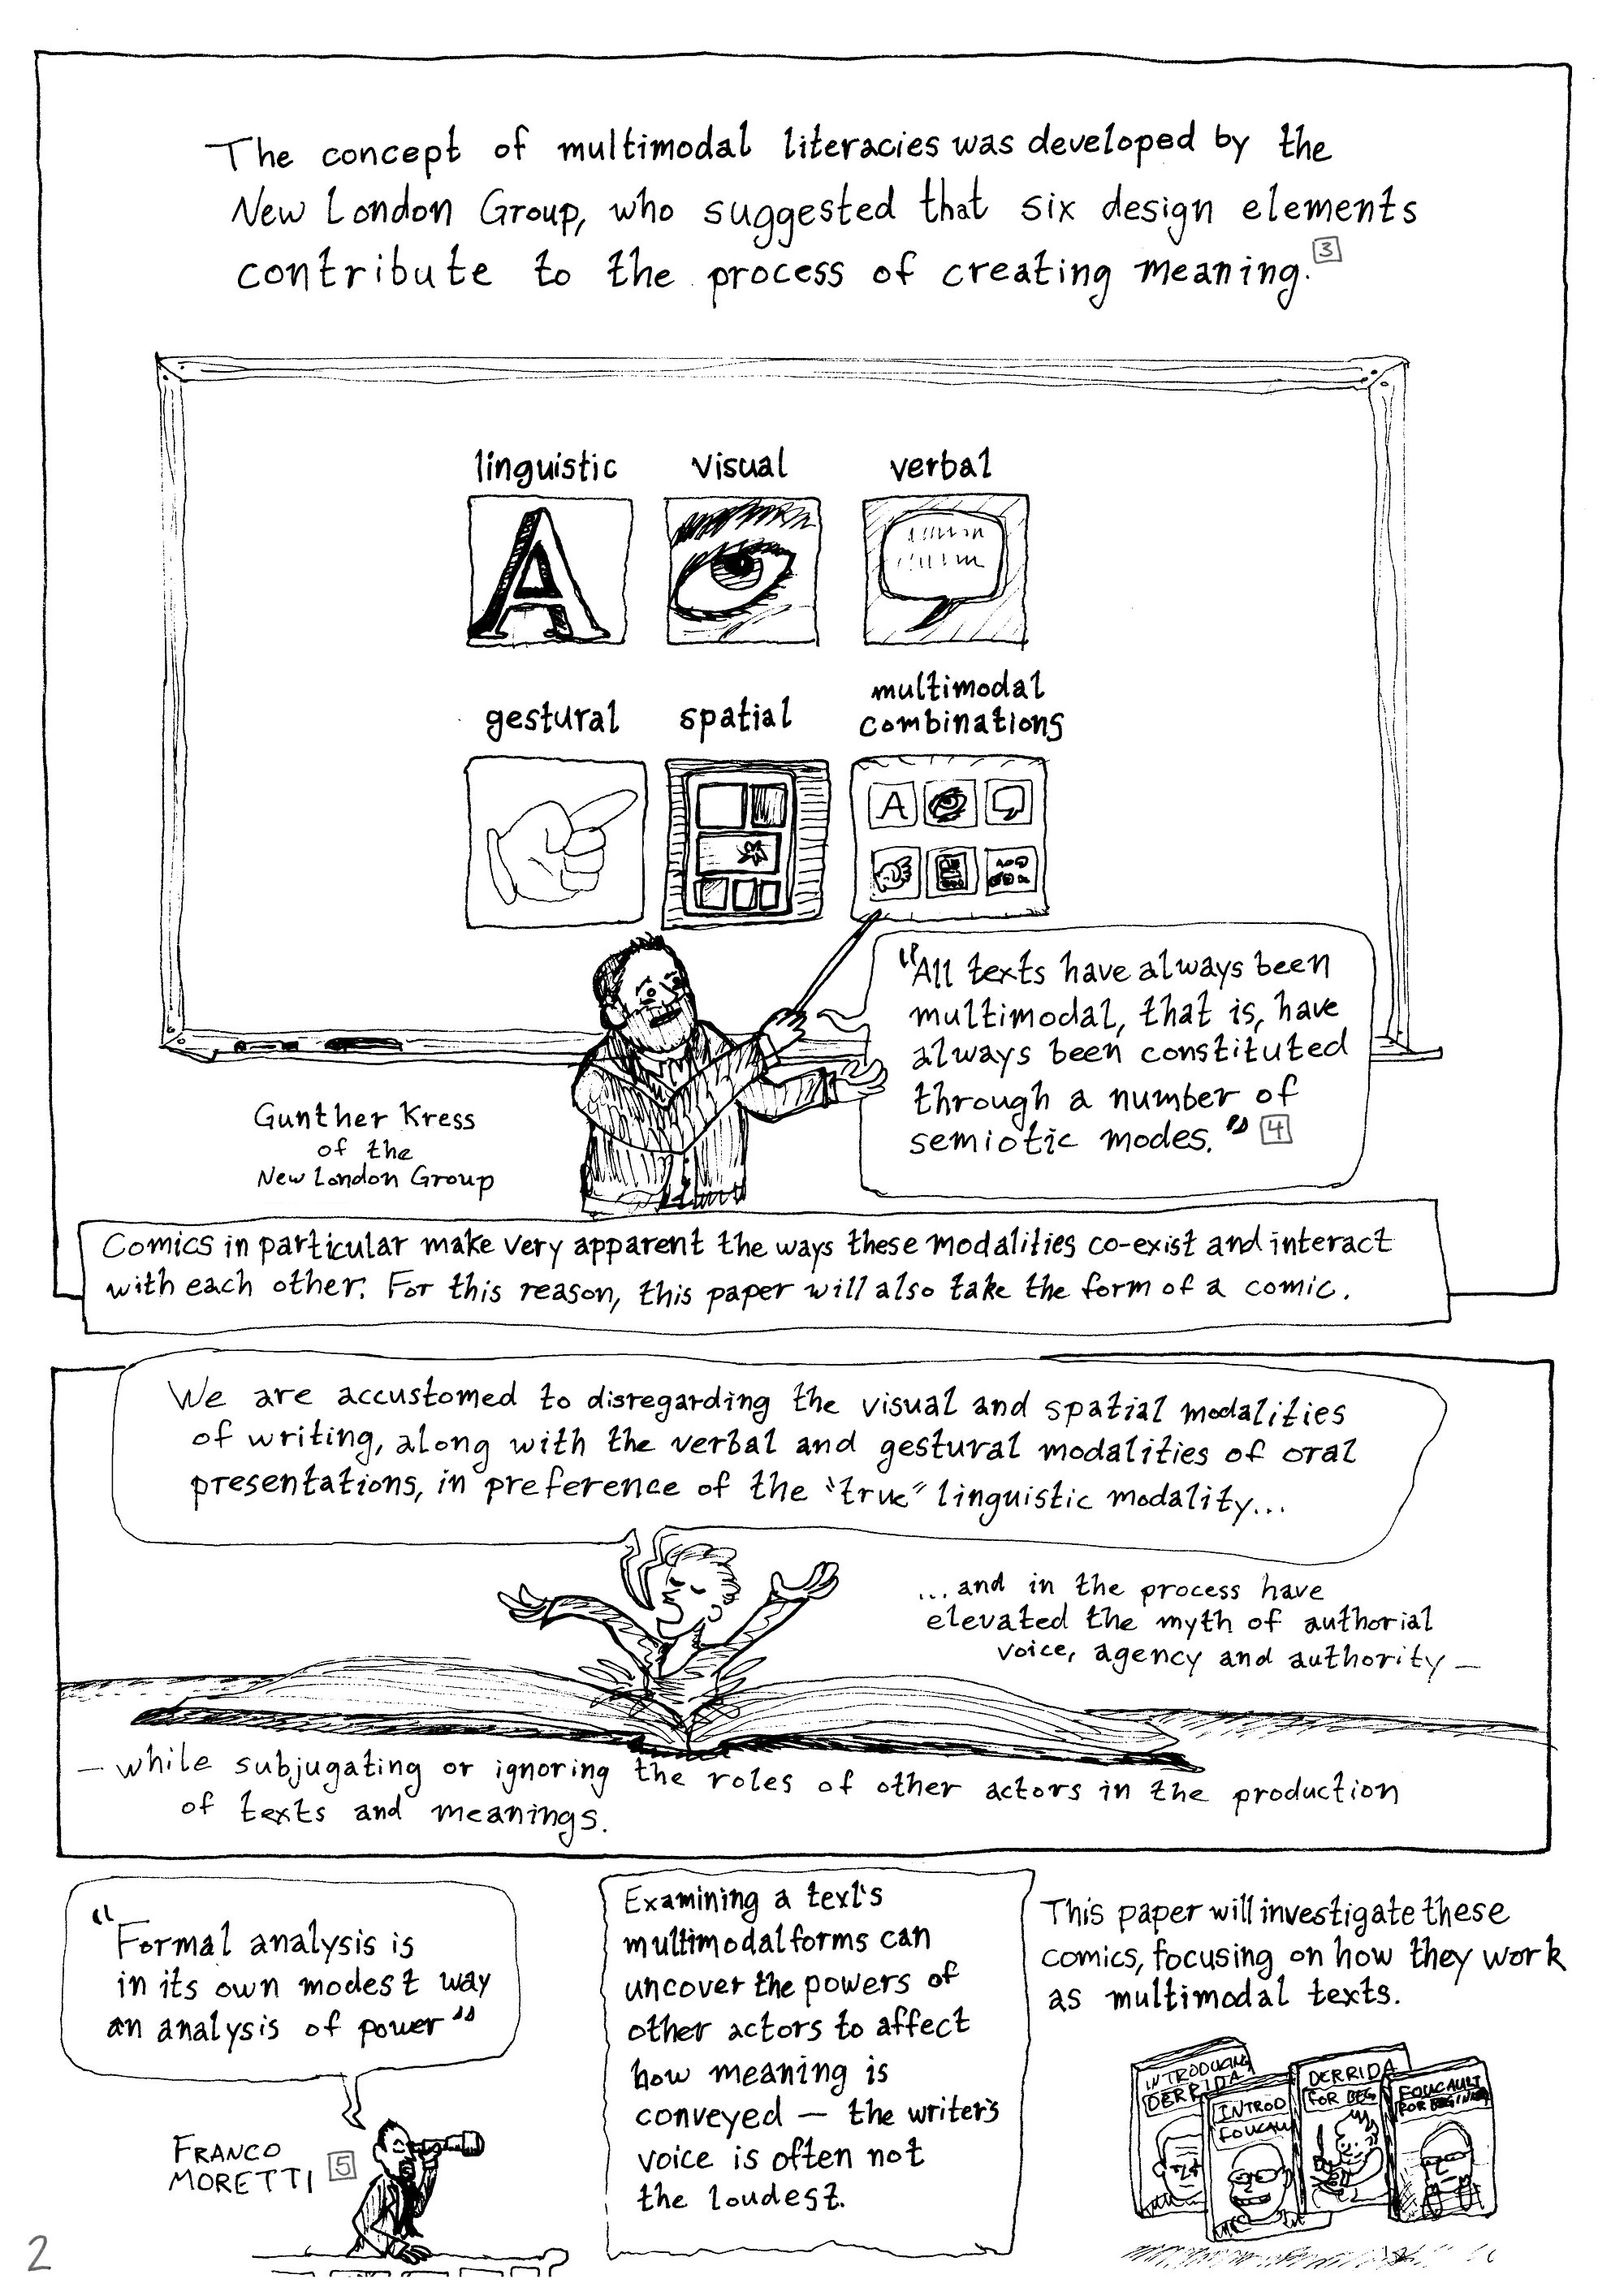 The concept of multimodal literacies was developed by the
New London Group, who suggested that six design elements
contribute to the process of creating meaning. 3
linguistic visual verbal
A
gestural spatial multimodal
combinations
A
"All texts have always been
multimodal, that is, have
always been constituted
through a number of
semiotic modes." 4
Gunther Kress
of the
New London Group
Comics in particular make very apparent the ways these modalities co-exist and interact
with each other. For this reason, this paper will also take the form of a comic.
We are accustomed to disregarding the visual and spatial modalities
of writing, along with the verbal and gestural modalities of oral
presentations, in preference of the "true" linguistic modality...
...and in the process have
elevated the myth of authorial
voice, agency and authority —
— while subjugating or ignoring the roles of other actors in the production
of texts and meanings.
"Formal analysis is
in its own modest way
an analysis of power"
FRANCO
MORETTI 5
Examining a text's
multimodal forms can
uncover the powers of
other actors to affect
how meaning is
conveyed — the writer's
voice is often not
the loudest.
This paper will investigate these
comics, focusing on how they work
as multimodal texts.
INTRODUCING
DERRIDA
INTROD
FOUCAU
DERRIDA
FOR BEG
FOUCAULT
FOR BEGINN
2